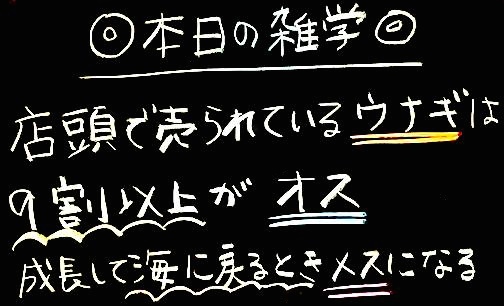 ◎本日の雑学◎
店頭で売られているウナギは
9割以上がオス
成長して海に戻るときメスになる